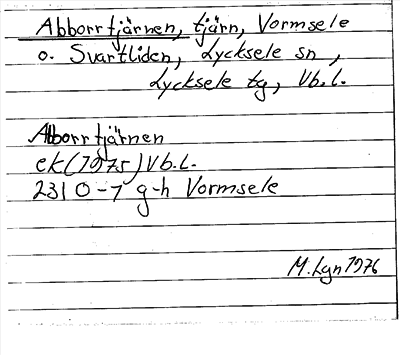 Abborrtjärnen, tjärn, Vormsele
o. Svartliden, Lycksele sn,
Lycksele tg, Vb.l.
Abborrtjärnen
ek(1975)Vb.l.
231 O-7 g-h Vormsele
M.Lgn 1976